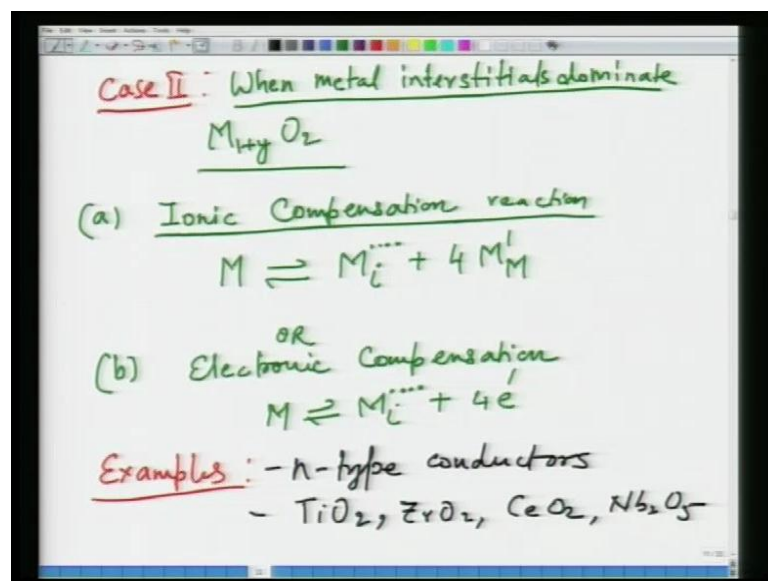 Case II : When metal interstitials dominate
M₁₊yO₂
(a) Ionic Compensation reaction
M ⇌ Mᵢ•••• + 4 M'M
OR
(b) Electronic Compensation
M ⇌ Mᵢ•••• + 4e'
Examples : - n-type conductors
- TiO₂, ZrO₂, CeO₂, Nb₂O₅